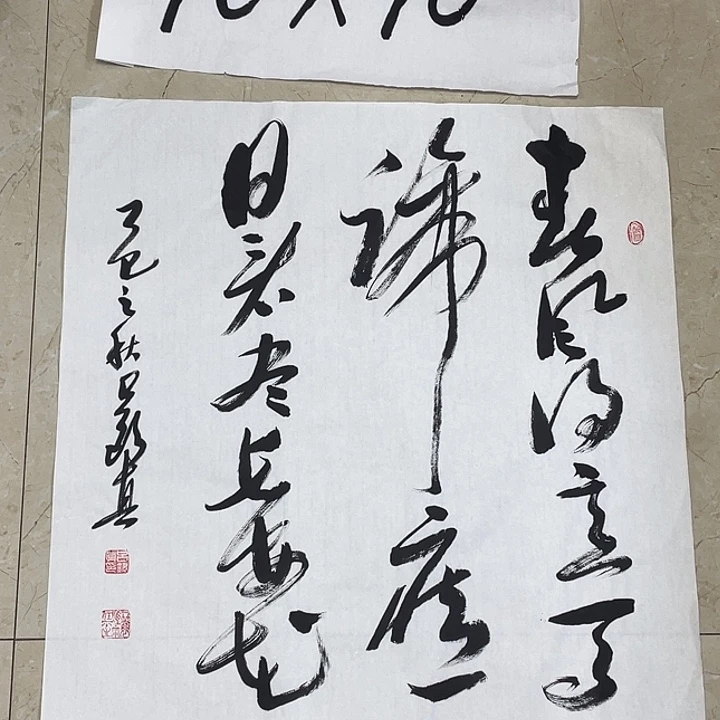 春风得意马
蹄疾一
日看尽长安花
乙巳之秋